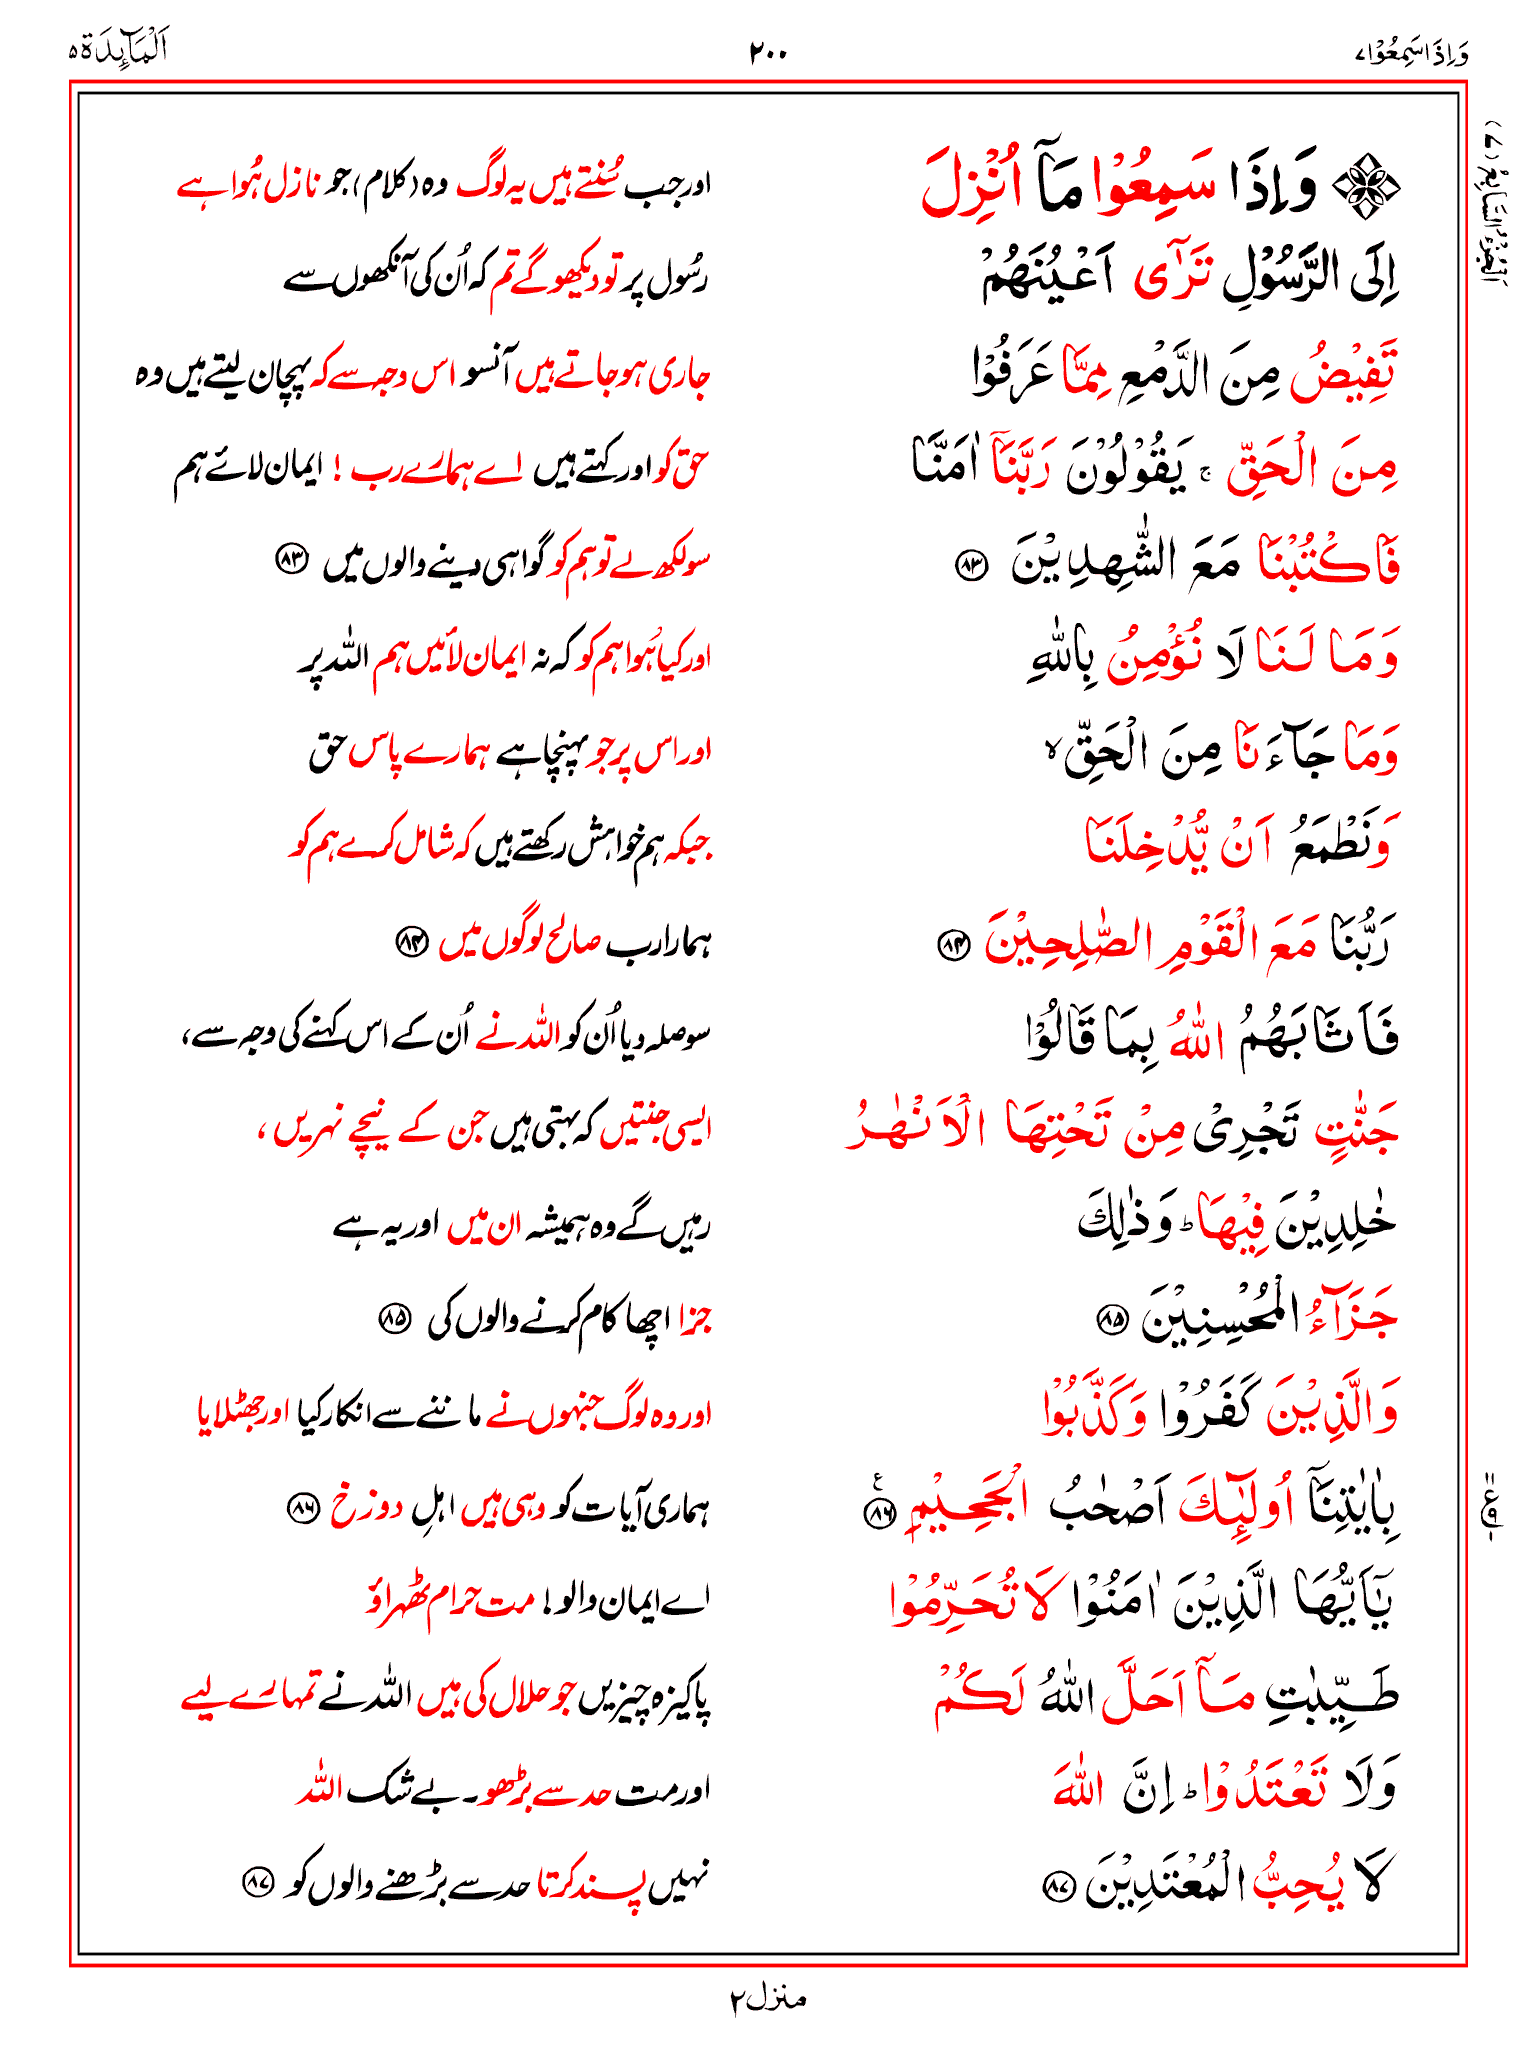 وَاِذَا سَمِعُوْا ٧
٢٠٠
اَلْمَآىِٕدَة ٥
اَلْجُزْءُ السَّابِعُ (٧)
وَاِذَا سَمِعُوْا مَآ اُنْزِلَ
اور جب سُنتے ہیں یہ لوگ وہ (کلام) جو نازل ہُوا ہے
اِلَى الرَّسُوْلِ تَرٰٓى اَعْيُنَهُمْ
رسُول پر تو دیکھو گے تم کہ اُن کی آنکھوں سے
تَفِيْضُ مِنَ الدَّمْعِ مِمَّا عَرَفُوْا
جاری ہو جاتے ہیں آنسو اس وجہ سے کہ پہچان لیتے ہیں وہ
مِنَ الْحَقِّ ۚ يَقُوْلُوْنَ رَبَّنَآ اٰمَنَّا
حق کو اور کہتے ہیں اے ہمارے رب ! ایمان لائے ہم
فَاكْتُبْنَا مَعَ الشّٰهِدِيْنَ ٨٣
سو لکھ لے تو ہم کو گواہی دینے والوں میں ٨٣
وَمَا لَنَا لَا نُؤْمِنُ بِاللّٰهِ
اور کیا ہُوا ہم کو کہ نہ ایمان لائیں ہم اللہ پر
وَمَا جَآءَنَا مِنَ الْحَقِّ ۙ
اور اس پر جو پہنچا ہے ہمارے پاس حق
وَنَطْمَعُ اَنْ يُّدْخِلَنَا
جبکہ ہم خواہش رکھتے ہیں کہ شامل کرے ہم کو
رَبُّنَا مَعَ الْقَوْمِ الصّٰلِحِيْنَ ٨٤
ہمارا رب صالح لوگوں میں ٨٤
فَاَثَابَهُمُ اللّٰهُ بِمَا قَالُوْا
سو صلہ دیا اُن کو اللہ نے اُن کے اس کہنے کی وجہ سے،
جَنّٰتٍ تَجْرِىْ مِنْ تَحْتِهَا الْاَنْهٰرُ
ایسی جنتیں کہ بہتی ہیں جن کے نیچے نہریں ،
خٰلِدِيْنَ فِيْهَا ؕ وَذٰلِكَ
رہیں گے وہ ہمیشہ ان میں اور یہ ہے
جَزَآءُ الْمُحْسِنِيْنَ ٨٥
جزا اچھا کام کرنے والوں کی ٨٥
وَالَّذِيْنَ كَفَرُوْا وَكَذَّبُوْا
اور وہ لوگ جنہوں نے ماننے سے انکار کیا اور جھٹلایا
بِاٰيٰتِنَآ اُولٰٓىِٕكَ اَصْحٰبُ الْجَحِيْمِ ٨٦ ع
ہماری آیات کو وہی ہیں اہلِ دوزخ ٨٦
يٰٓاَيُّهَا الَّذِيْنَ اٰمَنُوْا لَا تُحَرِّمُوْا
اے ایمان والو! مت حرام ٹھہراؤ
طَيِّبٰتِ مَآ اَحَلَّ اللّٰهُ لَكُمْ
پاکیزہ چیزیں جو حلال کی ہیں اللہ نے تمہارے لیے
وَلَا تَعْتَدُوْا ؕ اِنَّ اللّٰهَ
اور مت حد سے بڑھو۔ بے شک اللہ
لَا يُحِبُّ الْمُعْتَدِيْنَ ٨٧
نہیں پسند کرتا حد سے بڑھنے والوں کو ٨٧
منزل ٢